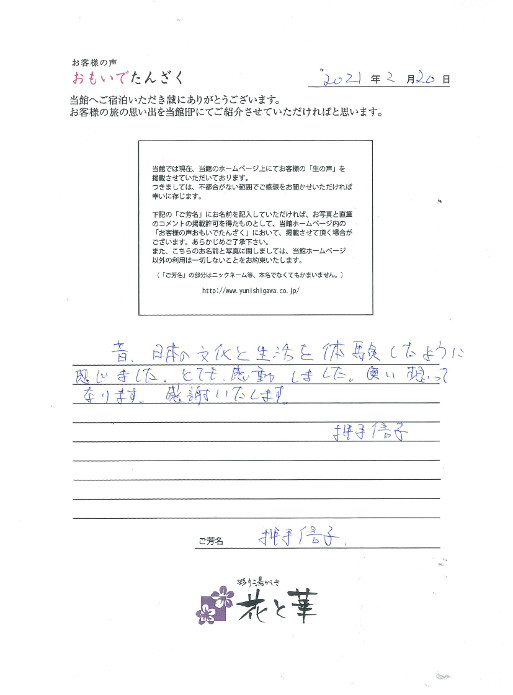 お客様の声
おもいでたんざく
2021年2月20日
当館へご宿泊いただき誠にありがとうございます。
お客様の旅の思い出を当館HPにてご紹介させていただければと思います。
当館では現在、当館のホームページ上にてお客様の「生の声」を
掲載させていただいております。
つきましては、不都合がない範囲でご感想をお聞かせいただければ
幸いに存じます。
下記の「ご芳名」にお名前を記入していただければ、お写真と直筆
のコメントの掲載許可を得たものとして、当館ホームページ内の
「お客様の声おもいでたんざく」において、掲載させて頂く場合が
ございます。あらかじめご了承下さい。
また、こちらのお名前と写真に関しましては、当館ホームページ
以外の利用は一切しないことをお約束いたします。
（「ご芳名」の部分はニックネーム等、本名でなくてもかまいません。）
http://www.yunishigawa.co.jp/
昔、日本の文化と生活を体験したように
感じました。とても感動しました。良い想って
なります。感謝いたします。
押手信子
ご芳名 押手信子
花と華